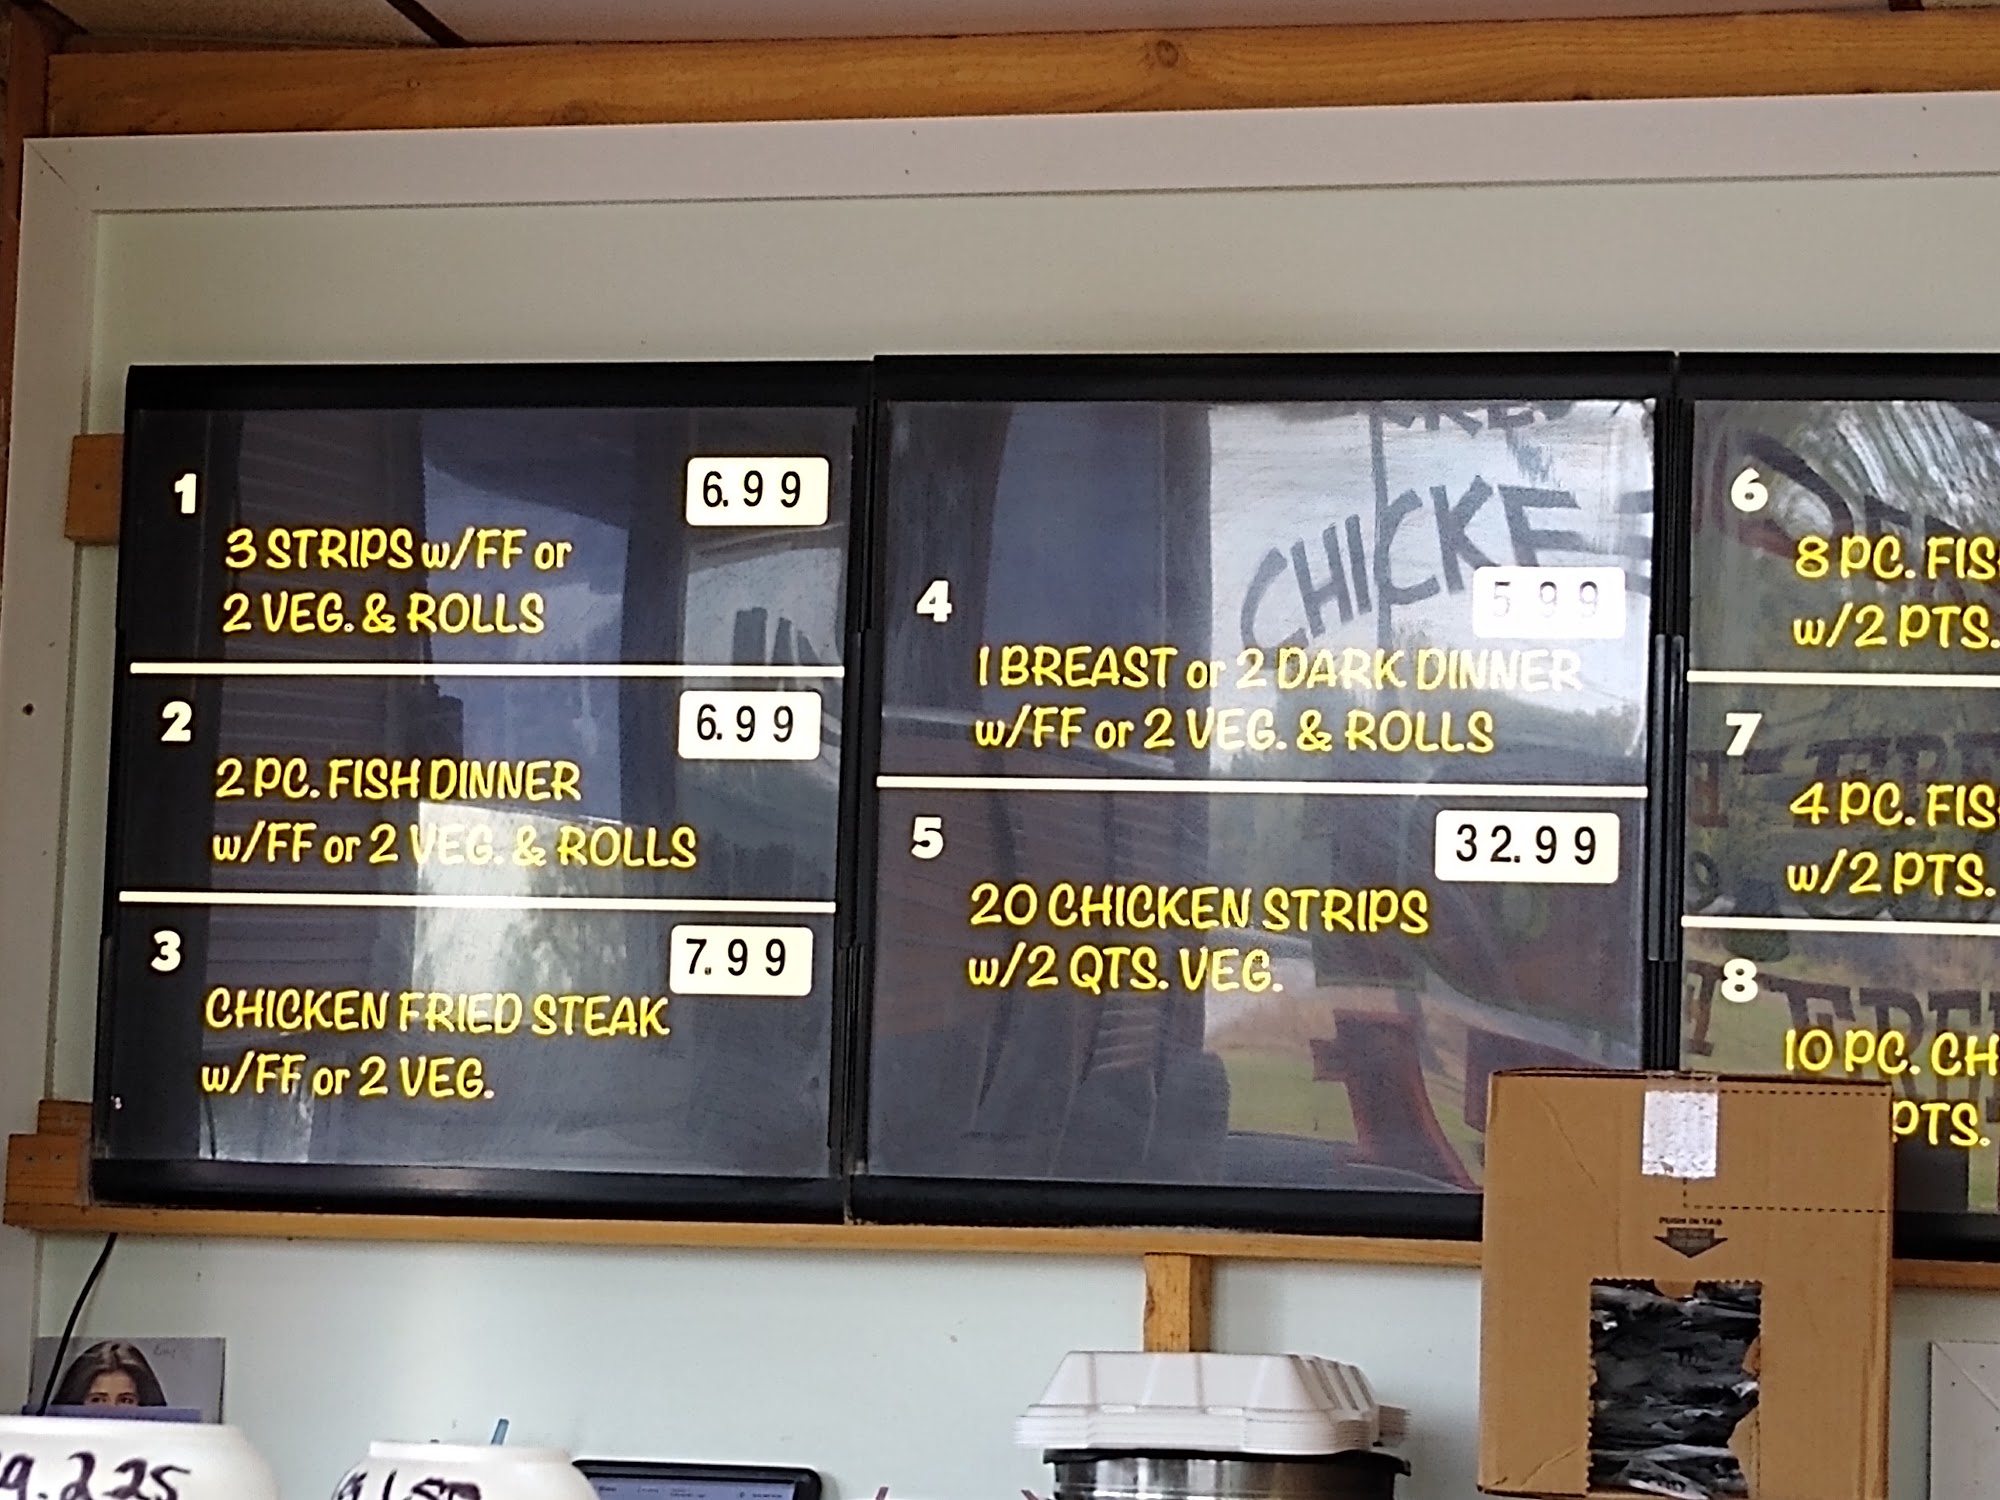 1
6.99
3 STRIPS w/FF or
2 VEG. & ROLLS
2
6.99
2 PC. FISH DINNER
w/FF or 2 VEG. & ROLLS
3
7.99
CHICKEN FRIED STEAK
w/FF or 2 VEG.
CHICKE
4
5 99
1 BREAST or 2 DARK DINNER
w/FF or 2 VEG. & ROLLS
5
32.99
20 CHICKEN STRIPS
w/2 QTS. VEG.
6
8 PC. FIS
w/2 PTS.
7
4 PC. FIS
w/2 PTS.
8
10 PC. CH
PTS.
PUSH IN TAB